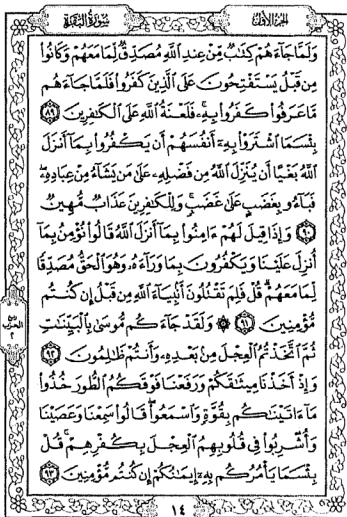 الجزء الأول
سورة البقرة
وَلَمَّا جَآءَهُمْ كِتَٰبٌ مِّنْ عِندِ ٱللَّهِ مُصَدِّقٌ لِّمَا مَعَهُمْ وَكَانُوا۟
مِن قَبْلُ يَسْتَفْتِحُونَ عَلَى ٱلَّذِينَ كَفَرُوا۟ فَلَمَّا جَآءَهُم
مَّا عَرَفُوا۟ كَفَرُوا۟ بِهِۦ فَلَعْنَةُ ٱللَّهِ عَلَى ٱلْكَٰفِرِينَ ٨٩
بِئْسَمَا ٱشْتَرَوْا۟ بِهِۦٓ أَنفُسَهُمْ أَن يَكْفُرُوا۟ بِمَآ أَنزَلَ
ٱللَّهُ بَغْيًا أَن يُنَزِّلَ ٱللَّهُ مِن فَضْلِهِۦ عَلَىٰ مَن يَشَآءُ مِنْ عِبَادِهِۦ
فَبَآءُو بِغَضَبٍ عَلَىٰ غَضَبٍ وَلِلْكَٰفِرِينَ عَذَابٌ مُّهِينٌ
٩٠ وَإِذَا قِيلَ لَهُمْ ءَامِنُوا۟ بِمَآ أَنزَلَ ٱللَّهُ قَالُوا۟ نُؤْمِنُ بِمَآ
أُنزِلَ عَلَيْنَا وَيَكْفُرُونَ بِمَا وَرَآءَهُۥ وَهُوَ ٱلْحَقُّ مُصَدِّقًا
لِّمَا مَعَهُمْ قُلْ فَلِمَ تَقْتُلُونَ أَنۢبِيَآءَ ٱللَّهِ مِن قَبْلُ إِن كُنتُم
مُّؤْمِنِينَ ٩١ ۞ وَلَقَدْ جَآءَكُم مُّوسَىٰ بِٱلْبَيِّنَٰتِ
ثُمَّ ٱتَّخَذْتُمُ ٱلْعِجْلَ مِنۢ بَعْدِهِۦ وَأَنتُمْ ظَٰلِمُونَ ٩٢
وَإِذْ أَخَذْنَا مِيثَٰقَكُمْ وَرَفَعْنَا فَوْقَكُمُ ٱلطُّورَ خُذُوا۟
مَآ ءَاتَيْنَٰكُم بِقُوَّةٍ وَٱسْمَعُوا۟ قَالُوا۟ سَمِعْنَا وَعَصَيْنَا
وَأُشْرِبُوا۟ فِى قُلُوبِهِمُ ٱلْعِجْلَ بِكُفْرِهِمْ قُلْ
بِئْسَمَا يَأْمُرُكُم بِهِۦٓ إِيمَٰنُكُمْ إِن كُنتُم مُّؤْمِنِينَ ٩٣
ربع
الحزب
٢
١٤